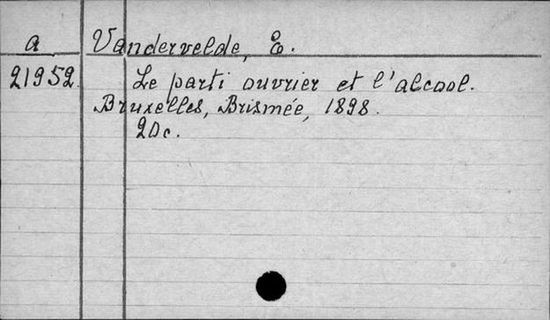 a Vandervelde, E.
21952. Le parti ouvrier et l'alcool.
Bruxelles, Brismée, 1898.
20c.